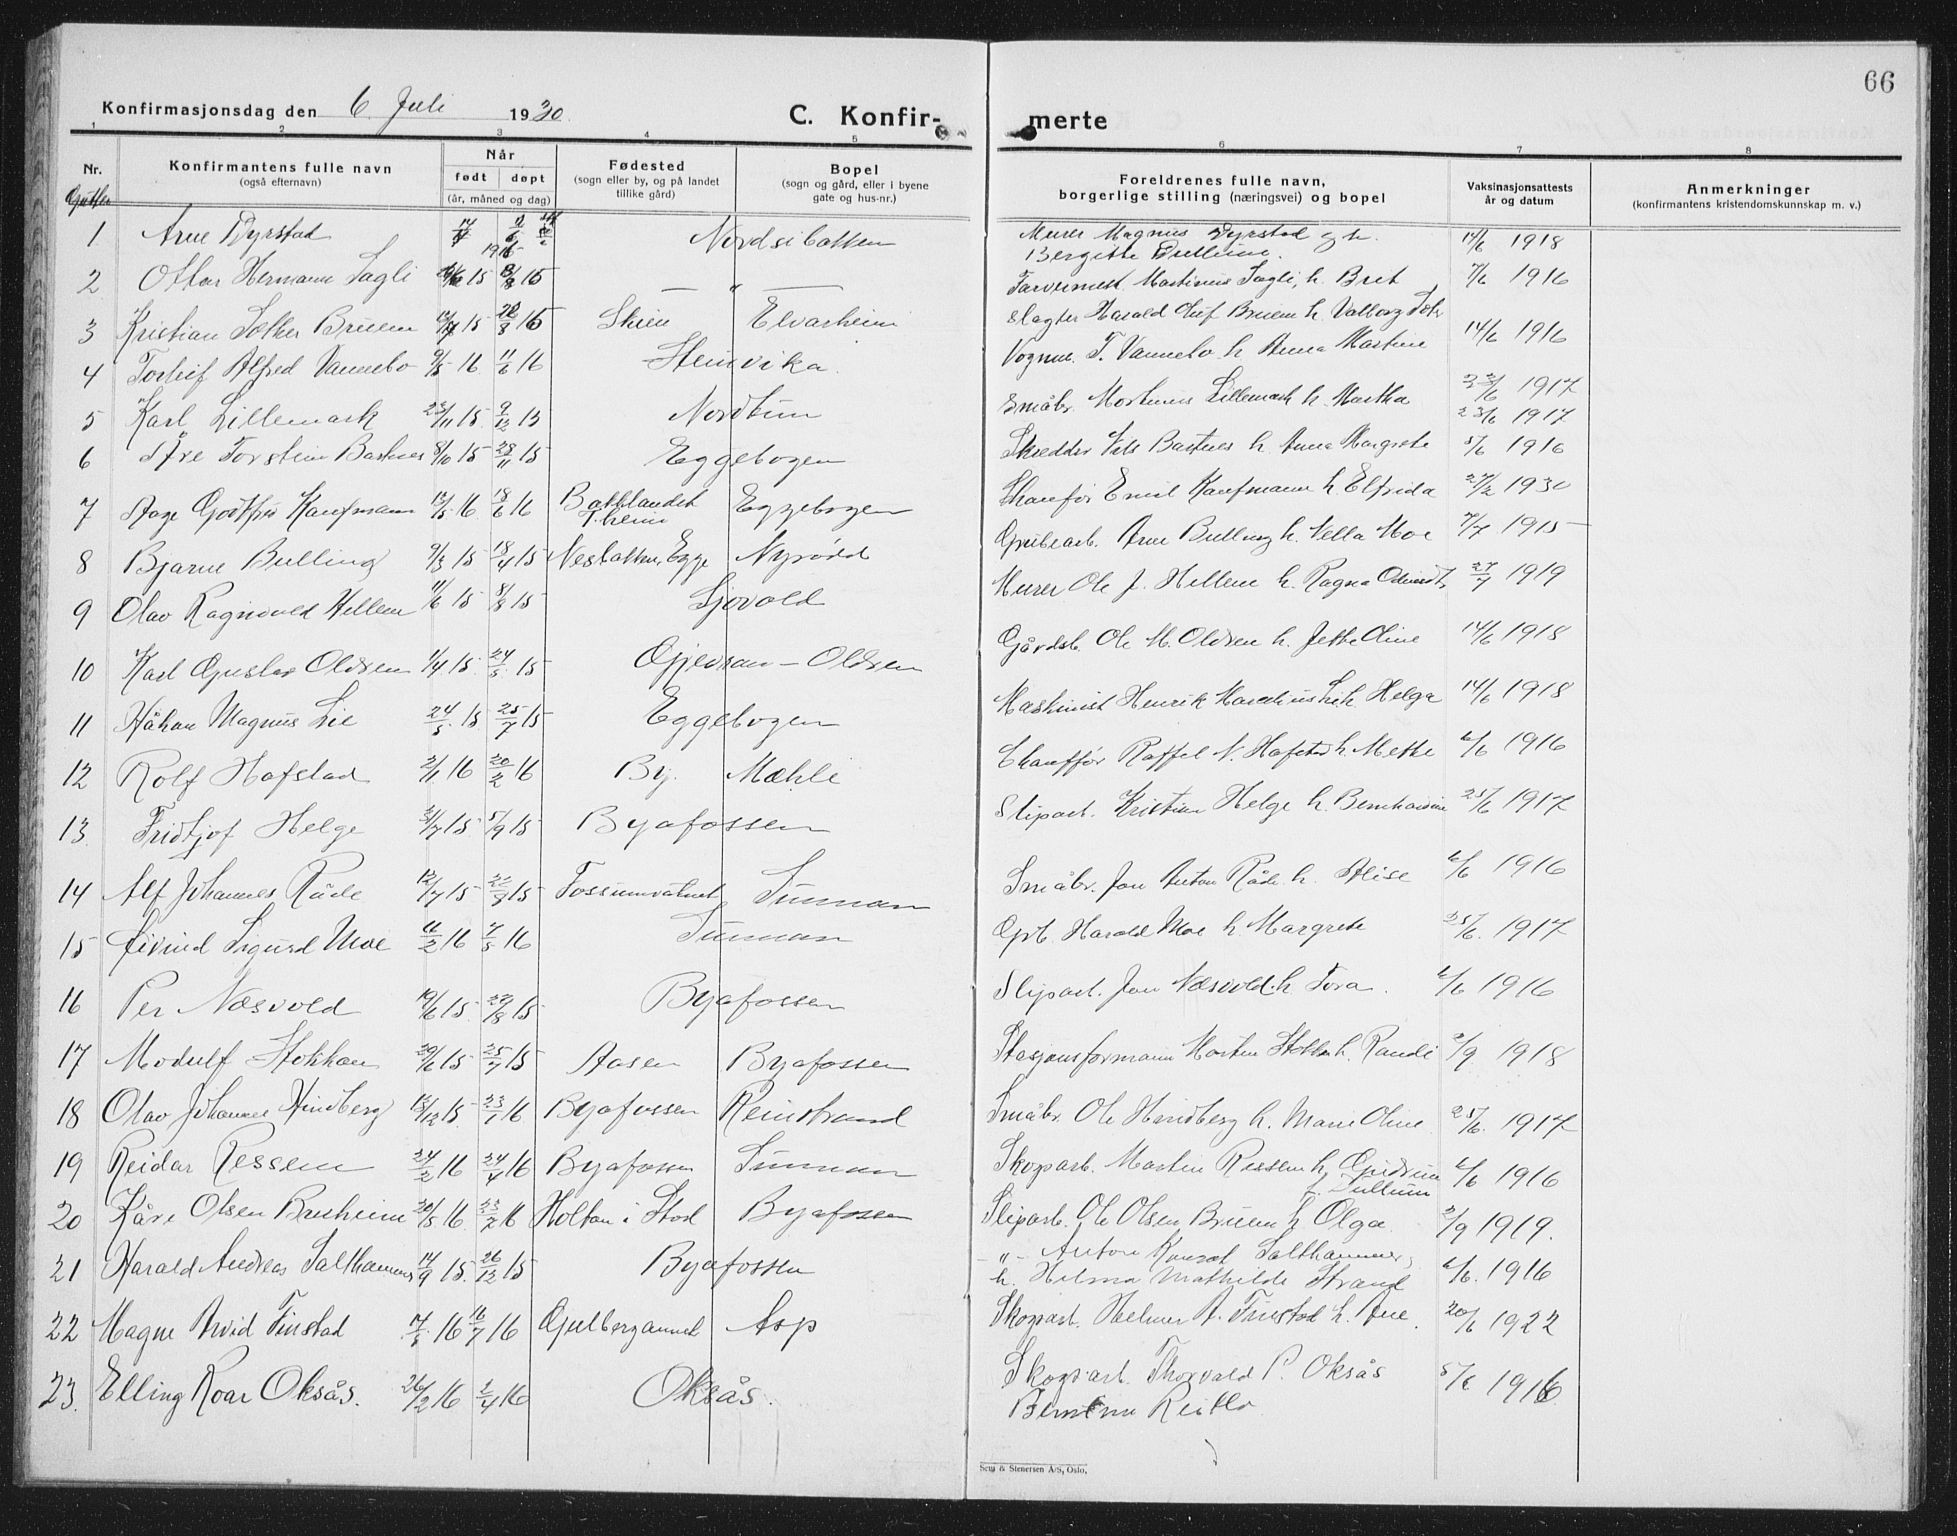 66
Konfirmasjonsdag den 6. Juli 1930
C. Konfir-
merte
1 2 3 4 5 6 7 8
Nr.
Konfirmantens fulle navn
(også efternavn)
Når
født døpt
(år, måned og dag)
Fødested
(sogn eller by, og på landet
tillike gård)
Bopel
(sogn og gård, eller i byene
gate og hus-nr.)
Foreldrenes fulle navn,
borgerlige stilling (næringsvei) og bopel
Vaksinasjonsattests
år og datum
Anmerkninger
(konfirmantens kristendomskunnskap m. v.)
Gutter
1 Arne Dyrstad Nordsibakken Murer Magnus Dyrstad og h. 14/6 1918
Bergitte
2 Ottar Hermann Sagli 15 8/8 15 — " — Martinius Sagli, h. Bret 7/6 1916
3 Kristian Sæther Bruem 15 20/8 15 Skien Elvarheim Slagter Harald Bruem h. Valborg
4 Torleif Alfred Vannebo 9/5 16 11/6 16 Stenvika Vognm. T. Vannebo h. Anna Martine 14/6 1916
5 Karl Lillemark 25/11 15 9/12 15 Nordtun Småbr. Martinus Lillemark h. Martha 23/6 1917
23/6 1917
6 Torstein Bartnes 8/10 15 28/11 15 Eggebogen Skredder Nils Bartnes h. Anna Margrete 5/6 1916
7 Aage Godtfred Kaufmann 13/5 16 18/6 16 Baklandet T.heim Eggebogen Chauffør Emil Kaufmann h. Elfrida 27/2 1930
8 Bjarne Bulling 9/3 15 18/4 15 Nesbakken, Egge Nyrødd Grubearb. Arne Bulling h. Nella Moe 7/7 1915
9 Olav Ragnvald Hellem 11/6 15 8/8 15 Sjøvold Murer Ole J. Hellem h. Ragna 27/7 1919
10 Karl Gustav Oldren 1/4 15 24/5 15 Gjevran - Oldren Gårdsb. Ole M. Oldren h. Jette Oline 14/6 1918
11 Håkon Magnus Lie 24/5 15 25/7 15 Eggebogen Maskinist Henrik Lie h. Helga 14/6 1918
12 Rolf Hofstad 2/1 16 20/2 16 By. Mæhli Chauffør N. Hofstad h. Mette 6/6 1916
13 Fridtjof Helge 31/7 15 5/9 15 Byafossen Sliparb. Kristian Helge h. Bernhardine 25/6 1917
14 Alf Johannes Råde 12/7 15 22/8 15 Fossumvatnet Sunnan Småbr. Jon Anton Råde h. Alise 6/6 1916
15 Eivind Sigurd Moe 11/2 16 7/5 16 Sunnan Grb. Harald Moe h. Margrete 25/6. 1917
16 Per Næsvold 19/6 15 29/8 15 Byafossen Sliparb. Jon Næsvold h. Tora. 6/6 1916
17 Modulf Stokkan 20/6 15 25/7 15 Aasen Byafossen Stasjonsformann Morten Stokkan h. Randi 2/9. 1918
18 Olav Johannes Hindberg 13/12 15. 23/1 16 Byafossen Reinstrand Småbr. Ole Hindberg h. Marie Oline 25/6. 1917
19 Reidar Ressem 24/2 16 24/4 16 Byafossen Sunnan Skogsarb. Martin Ressem h. Gudrun 6/6 1916
f. Tullum
20 Kåre Olsen Brusheim 20/5 16 23/7 16 Holtan i Stod Byafossen Sliparb. Ole Olsen Bruem h. Olga 2/9 1919.
21 Harald Andreas Salthammer 14/9 15. 26/12 15 Byafossen - " - Anton Konrad Salthammer, 6/6. 1916
h. Hilma Mathilde Strand
22 Magne Arvid Finstad 7/5 16 16/7 16 Gulbergaunet Asp Skogsarb. Helmer A. Finstad h. Ane. 20/6 1922
23. Elling Roar Oksås. 26/2 16 2/4 16 Oksås. Skogsarb. Thorvald P. Oksås 5/6 1916
Reitlo
Sem & Stenersen A/S, Oslo.